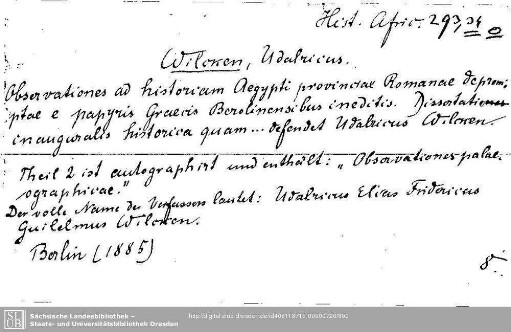 Hist. Afric. 293,
Wilcken, Udalricus.
Observationes ad historiam Aegypti provinciae Romanae depromptae
e papyris Graecis Berolinensibus ineditis. Dissertatio
inauguralis historica quam... defendet Udalricus Wilcken.
Theil 2 ist autographirt und enthält: „Observationes palaeographicae.“
Der volle Name des Verfassers lautet: Udalricus Elias Fridericus
Guilelmus Wilcken.
Berlin (1885)
8°
SLUB
Sächsische Landesbibliothek –
Staats- und Universitätsbibliothek Dresden